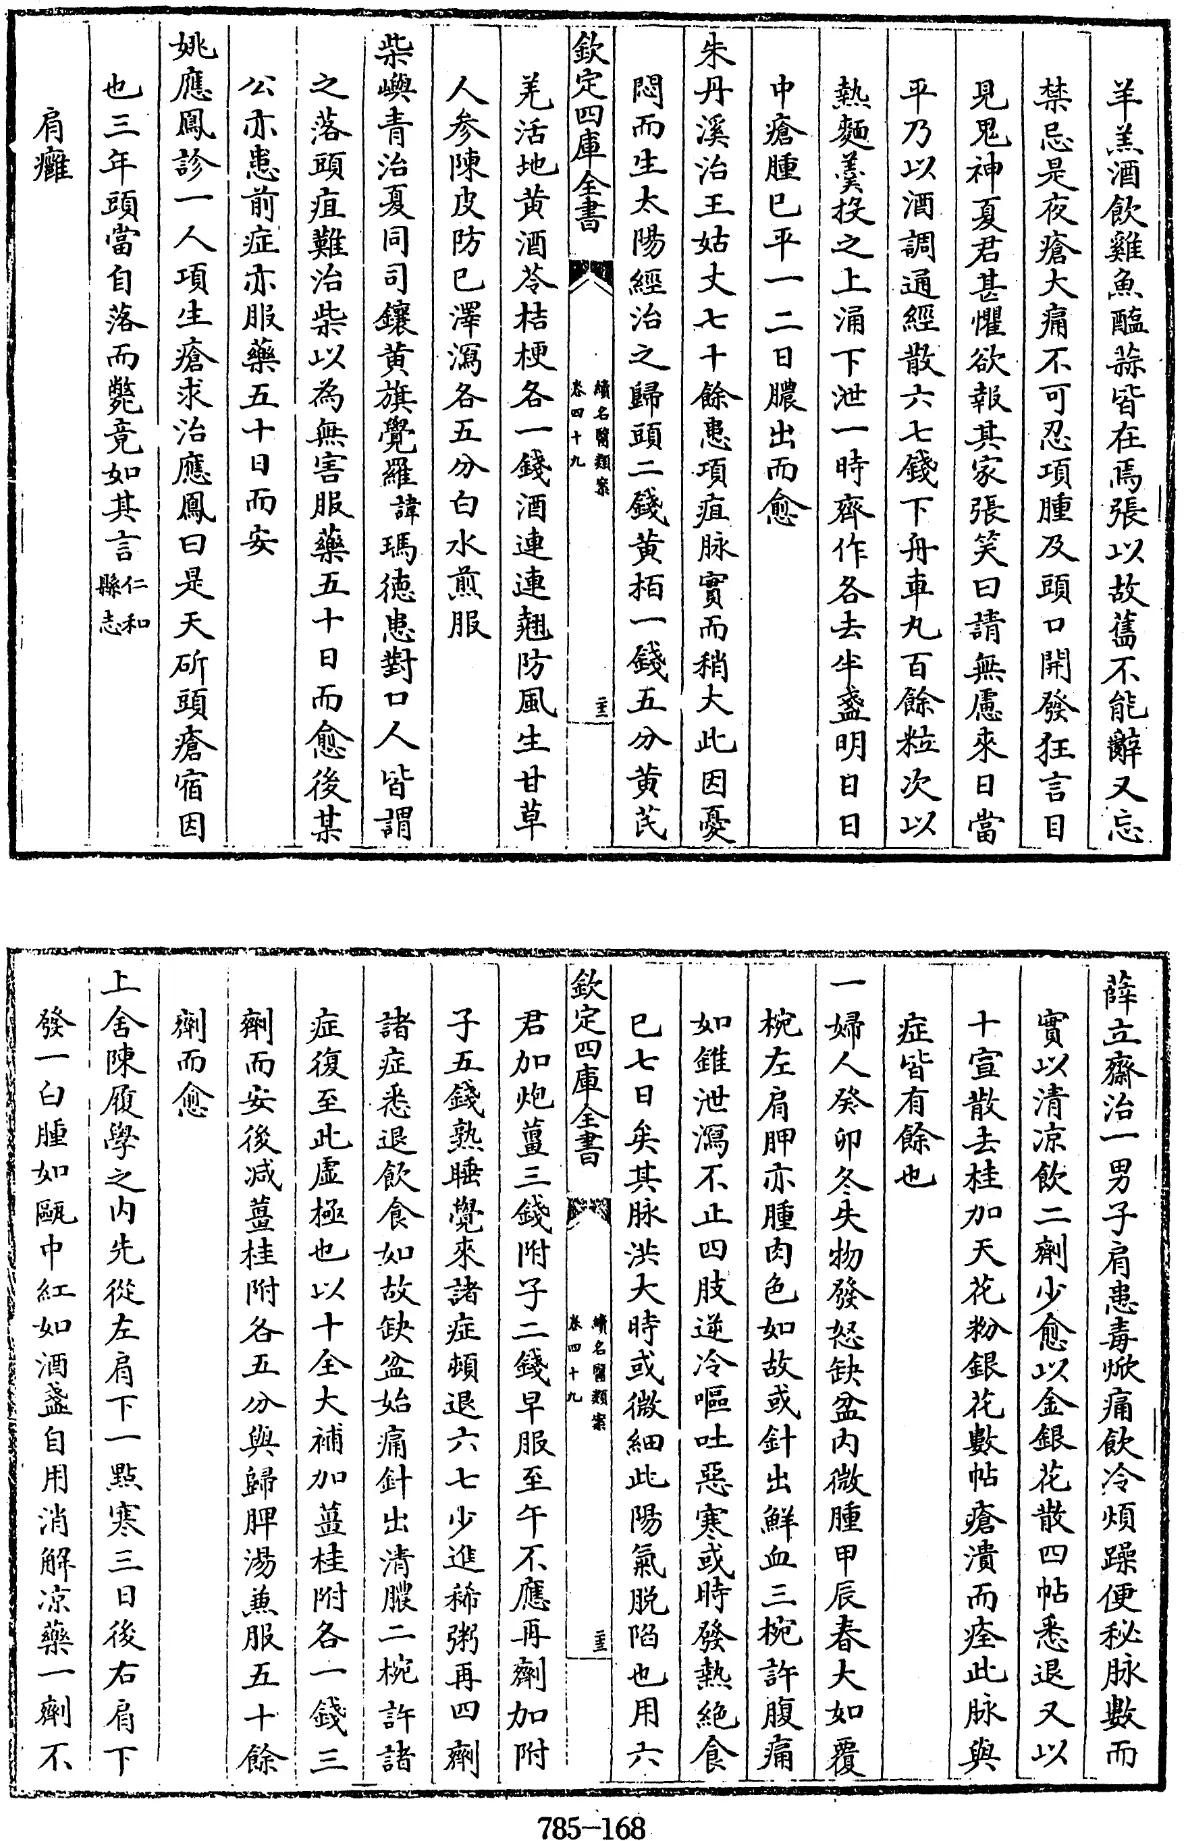 羊羔酒飲雞魚醢蒜皆在焉張以故舊不能辭又忘
禁忌是夜瘡大痛不可忍項腫及頭口開發狂言目
見鬼神夏君甚懼欲報其家張笑曰請無慮來日當
平乃以酒調通經散六七錢下舟車丸百餘粒次以
熱麵羹投之上涌下泄一時齊作各去半盞明日日
中瘡腫已平一二日膿出而愈
朱丹溪治王姑丈七十餘患項疽脉實而稍大此因憂
悶而生太陽經治之歸頭二錢黄栢一錢五分黄芪
欽定四庫全書
續名醫類案
卷四十九
羌活地黄酒芩桔梗各一錢酒連連翹防風生甘草
人参陳皮防已澤瀉各五分白水煎服
柴嶼青治夏同司鑲黄旗覺羅諱瑪徳患對口人皆謂
之落頭疽難治柴以為無害服藥五十日而愈後某
公亦患前症亦服藥五十日而安
姚應鳳診一人項生瘡求治應鳳曰是天斫頭瘡宿因
也三年頭當自落而斃竟如其言仁和縣志
肩癰
薛立齋治一男子肩患毒焮痛飲冷煩躁便秘脉數而
實以清凉飲二劑少愈以金銀花散四帖悉退又以
十宣散去桂加天花粉銀花數帖瘡潰而痊此脉與
症皆有餘也
一婦人癸卯冬失物發怒缺盆内微腫甲辰春大如覆
椀左肩胛亦腫肉色如故或針出鮮血三椀許腹痛
如錐泄瀉不止四肢逆冷嘔吐惡寒或時發熱絶食
已七日矣其脉洪大時或微細此陽氣脱陷也用六
欽定四庫全書
續名醫類案
卷四十九
君加炮薑三錢附子二錢早服至午不應再劑加附
子五錢熟睡覺來諸症頓退六七少進稀粥再四劑
諸症悉退飲食如故缺盆始痛針出清膿二椀許諸
症復至此虚極也以十全大補加薑桂附各一錢三
劑而安後减薑桂附各五分與歸脾湯兼服五十餘
劑而愈
上舍陳履學之内先從左肩下一點寒三日後右肩下
發一白腫如甌中紅如酒盞自用消解凉藥一劑不
785-168